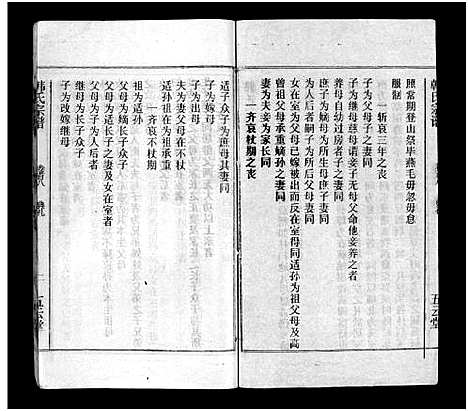 韩氏宗谱
五云堂
照常期登山祭毕燕毛毋忽毋怠
服制
一斩哀三年之丧
子为父母子之妻同
子为继母慈母谓亲子无母父命他妾养之者
养母自幼过房者子之妻同
庶子为所生母为嫡母庶子妻同
为人后者嗣子为所后父母其妻同
女在室为父母已嫁被出而反在室得同适孙为祖父母及高
曾祖父母承重嫡孙之妻同
妻为夫妾为家长同
一齐哀杖期之丧
适子众子为庶母其妻同
子为嫁母
夫为妻父母在不杖
适孙祖在为祖母承重
一齐哀不杖期
祖为适孙
父母为嫡长子众子
父母为适长子之妻及女在室者
父母为子为人后者
继母为长子众子
子为改嫁继母
韩氏宗谱
五云堂